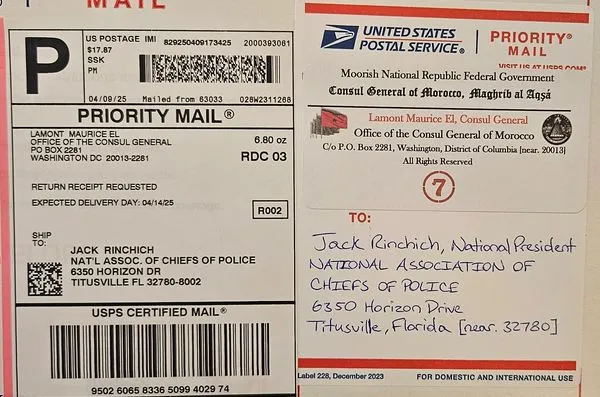 MAIL
P
US POSTAGE IMI 829250409173425 2000393081
$17.87
SSK
PM
04/09/25 Mailed from 63033 028W2311268
PRIORITY MAIL®
LAMONT MAURICE EL
OFFICE OF THE CONSUL GENERAL
PO BOX 2281
WASHINGTON DC 20013-2281
6.80 oz
RDC 03
RETURN RECEIPT REQUESTED
EXPECTED DELIVERY DAY: 04/14/25
R002
SHIP
TO:
JACK RINCHICH
NAT'L ASSOC. OF CHIEFS OF POLICE
6350 HORIZON DR
TITUSVILLE FL 32780-8002
USPS CERTIFIED MAIL®
9502 6065 8336 5099 4029 74
UNITED STATES
POSTAL SERVICE®
PRIORITY®
MAIL
VISIT US AT USPS.COM®
Moorish National Republic Federal Government
Consul General of Morocco, Maghrib al Aqsá
Lamont Maurice El, Consul General
Office of the Consul General of Morocco
C/o P.O. Box 2281, Washington, District of Columbia [near. 20013]
All Rights Reserved
7
TO:
Jack Rinchich, National President
NATIONAL ASSOCIATION OF
CHIEFS OF POLICE
6350 Horizon Drive
Titusville, Florida [near. 32780]
Label 228, December 2023 FOR DOMESTIC AND INTERNATIONAL USE